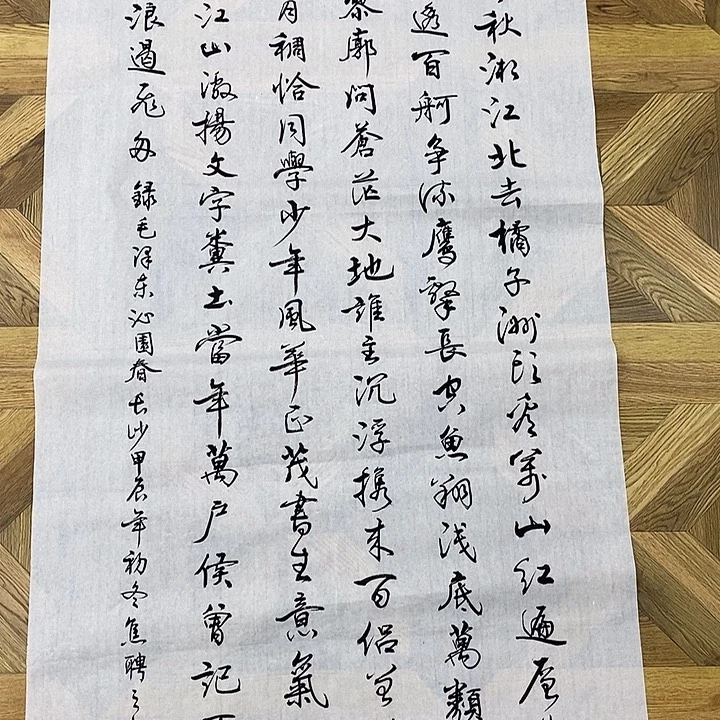 秋湘江北去橘子洲头看万山红遍层
透百舸争流鹰擊長空魚翔浅底萬類
廖廓问蒼茫大地誰主沉浮携来百侣曾
月稠恰同學少年風華正茂書生意氣
江山激揚文字糞土當年萬户侯曾记
浪遏飛舟 録毛泽东沁園春长沙甲辰年初冬焦聘之